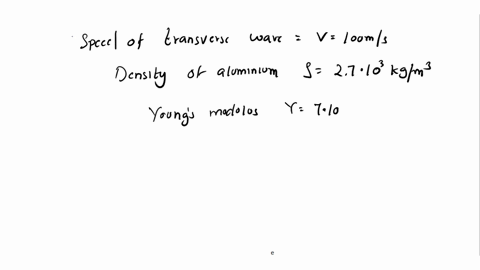 Speed of transverse wave = V = 100m/s
Density of aluminium ρ = 2.7·10³ kg/m³
Young's modolos Y = 7·10